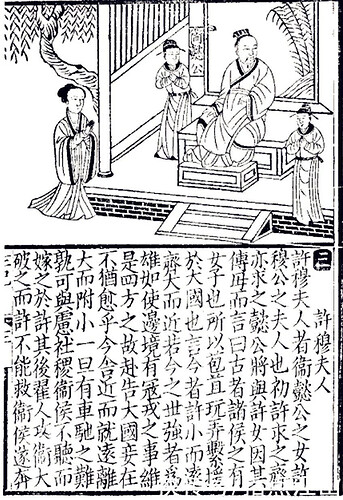 許穆夫人
三
許穆夫人者衛懿公之女許
穆公之夫人也初許求之齊
亦求之懿公將與許女因其
傅母而言曰古者諸侯之有
女子也所以苞苴玩弄繫援
於大國也言今者許小而遠
齊大而近若今之世強者為
雄如使邊境有寇戎之事維
是四方之故赴告大國妾在
不猶愈乎今舍近而就遠離
大而附小一旦有車馳之難
孰可與慮社稷衛侯不聽而
嫁之於許其後翟人攻衛大
破之而許不能救衛侯遂奔